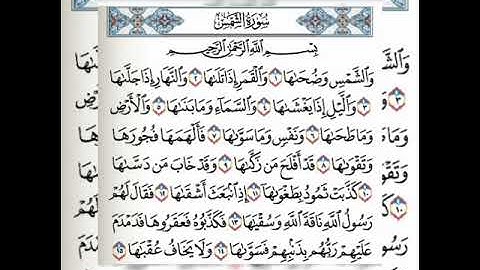 سُورَةُ الشَّمْسِ
بِسْمِ اللَّهِ الرَّحْمَٰنِ الرَّحِيمِ
وَالشَّمْسِ وَضُحَىٰهَا ١ وَالْقَمَرِ إِذَا تَلَىٰهَا ٢ وَالنَّهَارِ إِذَا جَلَّىٰهَا
٣ وَالَّيْلِ إِذَا يَغْشَىٰهَا ٤ وَالسَّمَاءِ وَمَا بَنَىٰهَا ٥ وَالْأَرْضِ
وَمَا طَحَىٰهَا ٦ وَنَفْسٍ وَمَا سَوَّىٰهَا ٧ فَأَلْهَمَهَا فُجُورَهَا
وَتَقْوَىٰهَا ٨ قَدْ أَفْلَحَ مَن زَكَّىٰهَا ٩ وَقَدْ خَابَ مَن دَسَّىٰهَا
١٠ كَذَّبَتْ ثَمُودُ بِطَغْوَىٰهَا ١١ إِذِ انبَعَثَ أَشْقَىٰهَا ١٢ فَقَالَ لَهُمْ
رَسُولُ اللَّهِ نَاقَةَ اللَّهِ وَسُقْيَٰهَا ١٣ فَكَذَّبُوهُ فَعَقَرُوهَا فَدَمْدَمَ
عَلَيْهِمْ رَبُّهُم بِذَنبِهِمْ فَسَوَّىٰهَا ١٤ وَلَا يَخَافُ عُقْبَٰهَا ١٥